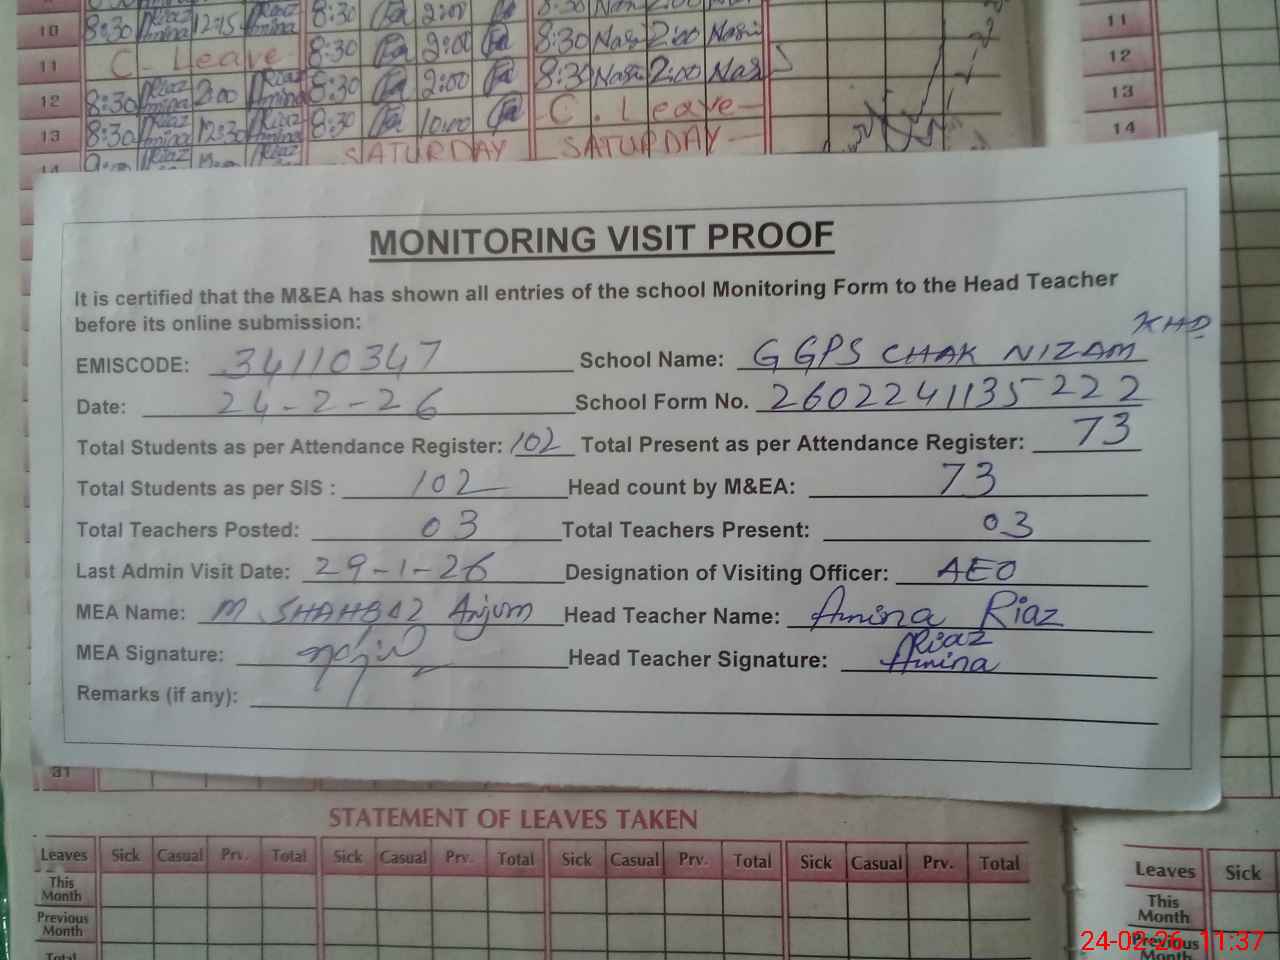 10 8:30 Riaz Amina 12:15 Riaz Amina 8:30 2:00 8:30 Nasi 2:00 Nasi 11
11 C. Leave 8:30 2:00 8:30 Nasi 2:00 Nasi 12
12 8:30 Riaz Amina 2:00 Riaz Amina 8:30 2:00 8:30 Nasi 2:00 Nasi 13
13 8:30 Riaz Amina 12:30 Riaz Amina 8:30 10:00 C. Leave 14
14 Riaz Riaz SATURDAY SATURDAY
MONITORING VISIT PROOF
It is certified that the M&EA has shown all entries of the school Monitoring Form to the Head Teacher
before its online submission:
KHD
EMISCODE: 34110347 School Name: GGPS CHAK NIZAM
Date: 24-2-26 School Form No. 2602241135222
Total Students as per Attendance Register: 102 Total Present as per Attendance Register: 73
Total Students as per SIS : 102 Head count by M&EA: 73
Total Teachers Posted: 03 Total Teachers Present: 03
Last Admin Visit Date: 29-1-26 Designation of Visiting Officer: AEO
MEA Name: M SHAHBAZ Anjum Head Teacher Name: Amina Riaz
MEA Signature: Head Teacher Signature: Riaz Amina
Remarks (if any):
31
STATEMENT OF LEAVES TAKEN
Leaves Sick Casual Prv. Total Sick Casual Prv. Total Sick Casual Prv. Total Sick Casual Prv. Total Leaves Sick
This Month This Month
Previous Month Previous Month
Total
24-02-26 11:37